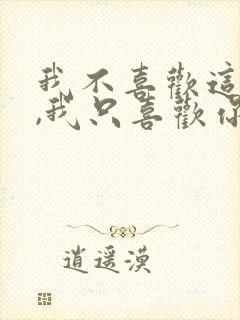 我不喜歡這
,我只喜歡你
逍遥漠